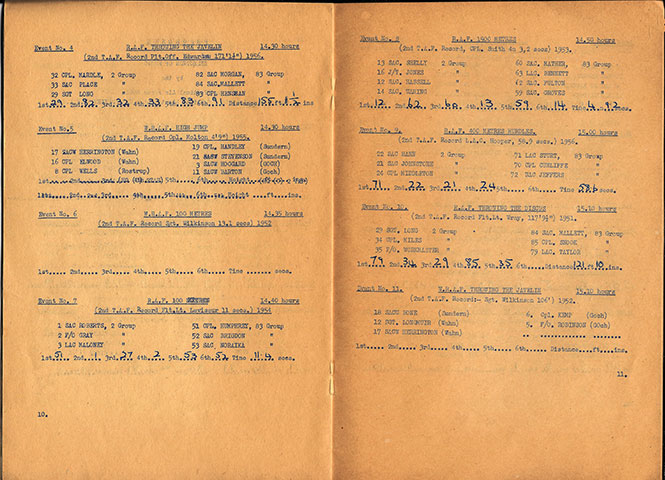 Event No. 4 R.A.F. THROWING THE JAVELIN 14.30 hours
(2nd T.A.F. Record Flt.Off. Edwardes 171'1½") 1956.
32 CPL. MARDLE, 2 Group 82 SAC MORGAN, 83 Group
33 SAC PLACE " 84 SAC.MALLETT "
29 SGT LONG " 83 CPL HENMAN "
1st.29. 2nd.82. 3rd.32 4th.33 5th.83 6th.91 Distance 155 ft ins
Event No.5 W.R.A.F. HIGH JUMP 14.30 hours
(2nd T.A.F. Record Cpl. Molton 4'9") 1955.
17 SACW HERRINGTON (Wahn) 19 CPL. HANDLEY (Sundern)
16 CPL ELWOOD (Wahn) 21 SACW STEVENSON (Sundern)
8 CPL WELLS (Rostrup) 3 SACW HOGGARD (GOCH)
11 SACW BARTON (Goch)
1st.....2nd.....3rd.....4th.....5th.....6th.....Height.....ft.....ins.
Event No. 6 W.R.A.F. 100 METRES 14.35 hours
(2nd T.A.F. Record Sgt. Wilkinson 13.1 secs) 1952
1st..... 2nd..... 3rd..... 4th..... 5th..... 6th..... Time ...... secs.
Event No. 7 R.A.F. 100 METRES 14.40 hours
(2nd T.A.F. Record Flt.Lt. 11 secs.) 1954
1 SAC ROBERTS, 2 Group 51 CPL. HUMPHREY, 83 Group
2 F/O GRAY " 52 SAC BRIGDON "
3 LAC MALONEY " 53 SAC NORAIKA "
1st.51. 2nd. 1 3rd.27 4th. 2 5th.53 6th.52 Time 11.4 secs.
10.
Event No. 8 R.A.F. 1500 METRES 14.50 hours
(2nd T.A.F. Record, CPL. Smith 4m 3.2 secs) 1953.
13 SAC. SHELLY 2 Group 60 SAC. MATHER, 83 Group
16 J/T. JONES " 63 LAC. BENNETT "
12 SAC. HASSELL " 62 SAC. FELTON "
14 SAC. WARING " 59 SAC. GROVES "
1st.12. 2nd.62 3rd. 4th.13 5th.59 6th.14 Time
Event No. 9. R.A.F. 400 METRES HURDLES. 15.00 hours
(2nd T.A.F. Record L.A.C. Hooper, 58.9 secs.) 1956.
22 SAC MANN 2 Group 71 LAC STURT, 83 Group
21 SAC JOHNSTONE " 70 CPL CUNLIFFE "
24 CPL MIDDLETON " 72 SAC JEFFERS "
1st.71. 2nd.22 3rd.21 4th.24 5th..... 6th..... Time 58.6 secs.
Event No. 10. R.A.F. THROWING THE DISCUS 15.10 hours
(2nd T.A.F. Record Flt.Lt. Wray, 117'9½") 1951.
29 SGT. LONG 2 Group 84 SAC. MALLETT, 83 Group
34 CPL MILES " 85 CPL. SNOOK "
35 F/O. WORCESTER " 79 LAC. TAYLOR "
1st.79 2nd.34 3rd.29 4th.85 5th.35 6th..... Distance 121 ft 10 ins.
Event No. 11. W.R.A.F. THROWING THE JAVELIN 15.10 hours
(2nd T.A.F. Record:- Sgt. Wilkinson 106') 1952.
18 SACW ROSE (Sundern) 6. Cpl. KEMP (Goch)
12 SGT. LONGMUIR (Wahn) 5. F/O. ROBINSON (Goch)
17 SACW HERRINGTON (Wahn) .. .................
1st..... 2nd..... 3rd..... 4th..... 5th..... 6th..... Distance....ft....ins.
11.